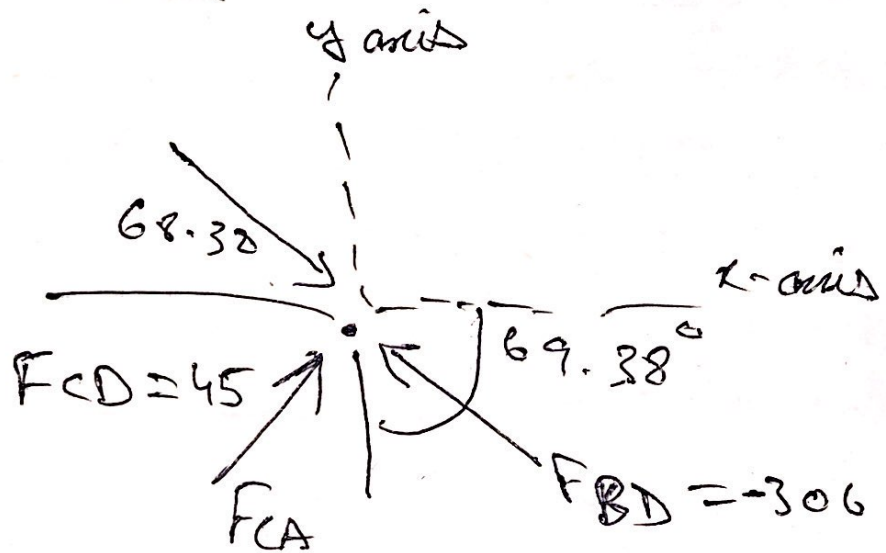 y axis
68.38
x-axis
69.38°
FCD = 45
FCA
FBD = -306